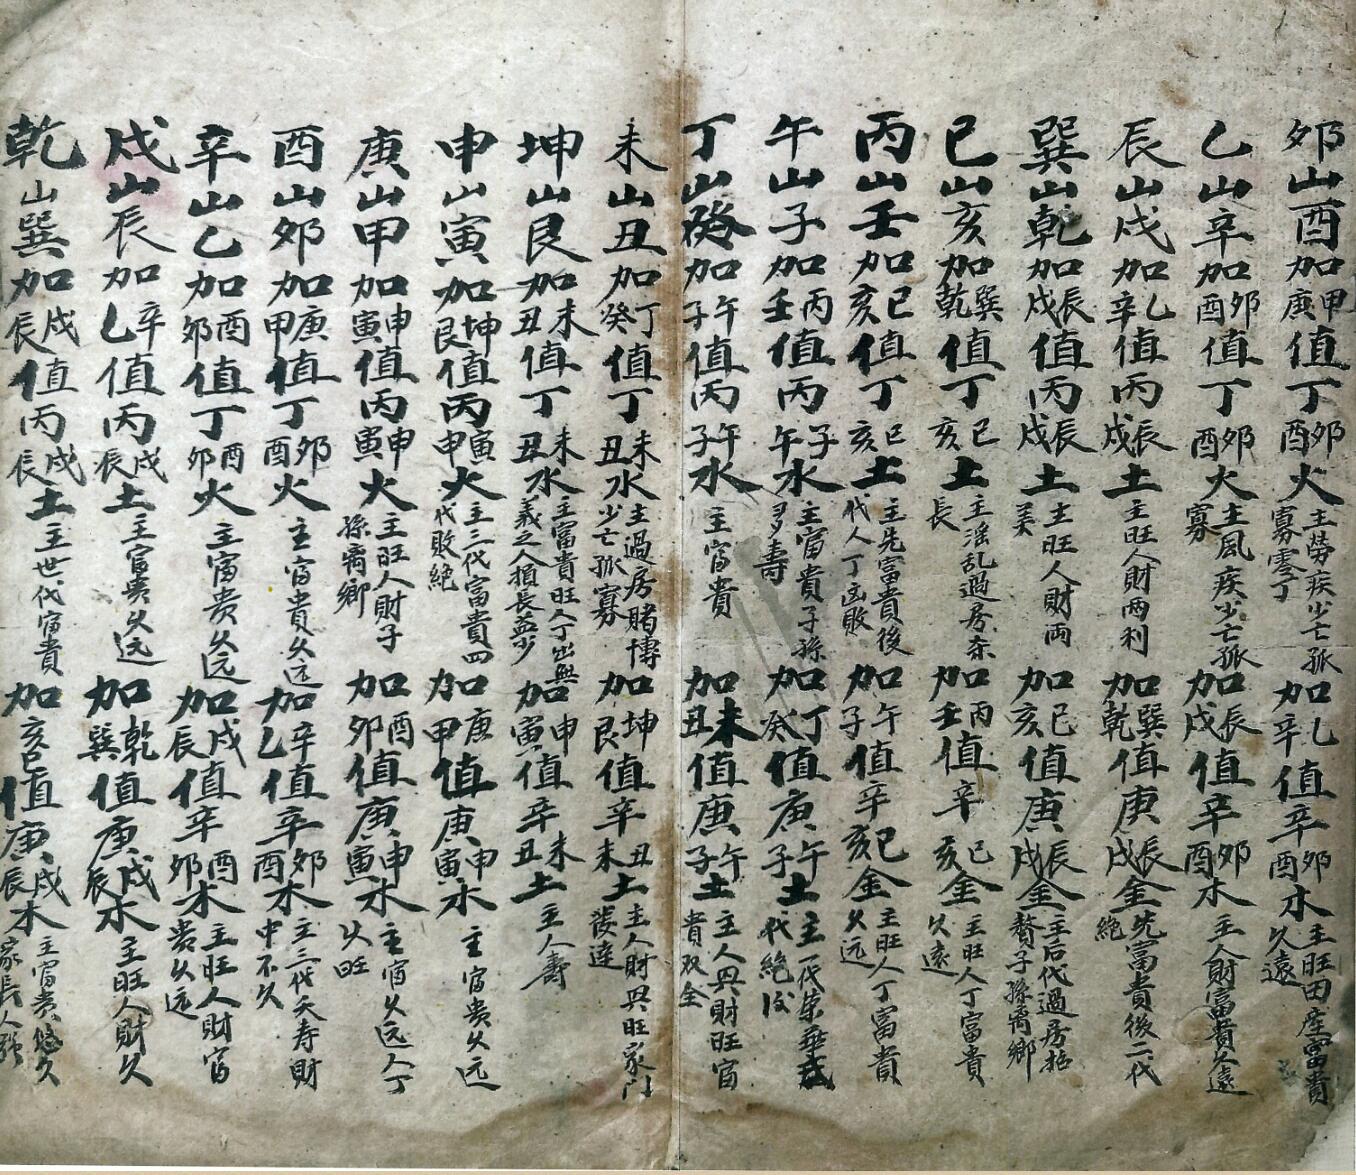 夘山酉加甲庚值丁夘酉火主勞疾少亡孤寡零丁加乙辛值辛夘酉木主旺田產富貴久遠
乙山辛加夘酉值丁夘酉火主風疾少亡孤寡加辰戌值辛夘酉木主人財富貴久遠
辰山戌加乙辛值丙辰戌土主旺人財两利加巽乾值庚辰戌金先富貴後二代絶
巽山乾加辰戌值丙辰戌土主旺人財両美加巳亥值庚辰戌金主后代過房抱贅子孫离鄉
巳山亥加巽乾值丁巳亥土主淫乱過房夭長加丙壬值辛巳亥金主旺人丁富貴久遠
丙山壬加巳亥值丁巳亥土主先富貴後代人丁凶敗加午子值辛巳亥金主旺人丁富貴久远
午山子加丙壬值丙子午水主富貴子孫多壽加丁癸值庚午子土主一代榮華代絶
丁山癸加午子值丙午子水主富貴加未丑值庚午子土主人興財旺富貴双全
未山丑加丁癸值丁未丑水主過房賭博少亡孤寡加坤艮值辛丑未土主人財興旺家門發達
坤山艮加未丑值丁未丑水主富貴旺人丁出無義之人損長益少加申寅值辛未丑土主人壽
申山寅加坤艮值丙寅申火主三代富貴四代敗絶加庚甲值庚申寅木主富贵久远
庚山甲加申寅值丙申寅火主旺人財子孫离鄉加酉夘值庚申寅木主富久远人丁火旺
酉山夘加庚甲值丁夘酉火主富貴久远加辛乙值辛夘酉木主三代夭寿財中不久
辛山乙加酉夘值丁酉夘火主富贵久远加戌辰值辛酉夘木主旺人財富贵久远
戌山辰加辛乙值丙戌辰土主富贵久远加乾巽值庚戌辰木主旺人財久
乾山巽加戌辰值丙戌辰土主世代富貴加亥巳值庚戌辰木主富贵悠久家長人